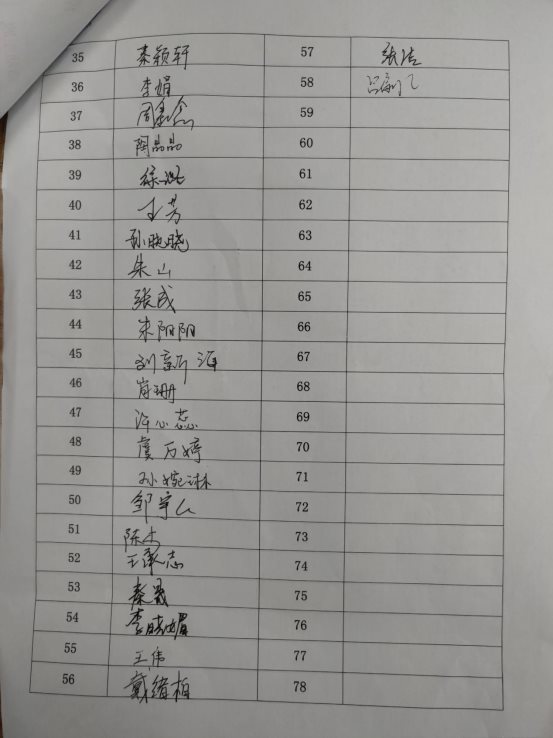 35 秦颖轩 57 张洁
36 李娟 58
37 周 59
38 陶晶晶 60
39 徐 61
40 王芳 62
41 孙晓晓 63
42 朱山 64
43 张成 65
44 朱阳阳 66
45 刘新 67
46 肖珊 68
47 许心蕊 69
48 虞万婷 70
49 孙婉琳 71
50 邹宇 72
51 陈 73
52 王承志 74
53 秦晟 75
54 李晓媚 76
55 王伟 77
56 戴绪柏 78